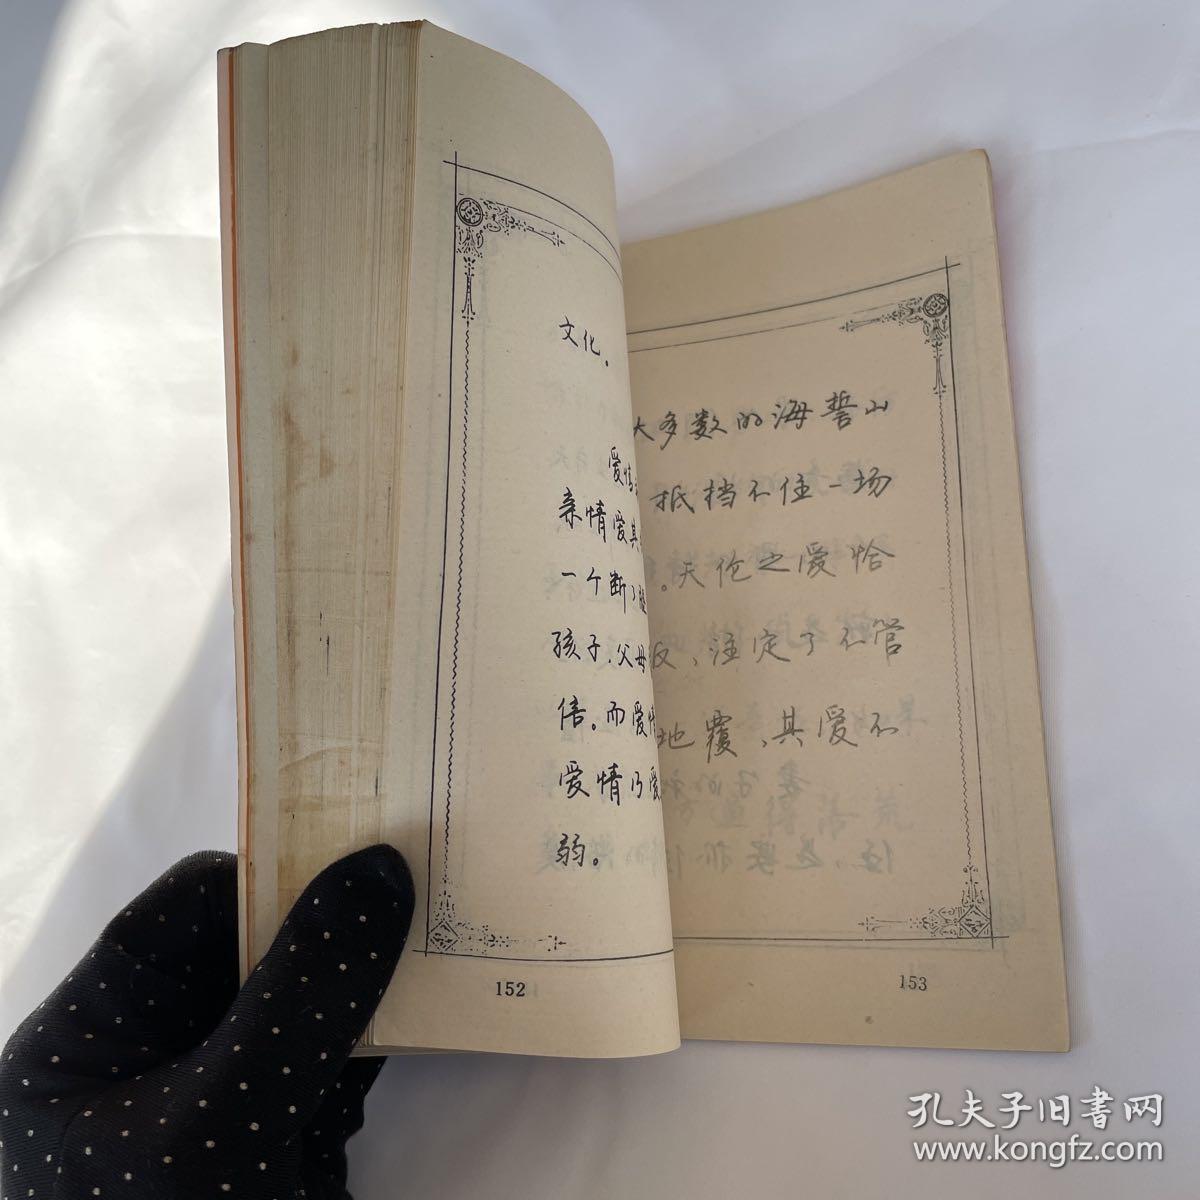 文化。
爱情
亲情爱其
一个断了腿
孩子，父母
倍。而爱情
爱情乃爱
弱。
152
大多数的海誓山
抵挡不住一场
。天伦之爱恰
，注定了不管
地覆，其爱不
153
孔夫子旧书网
www.kongfz.com